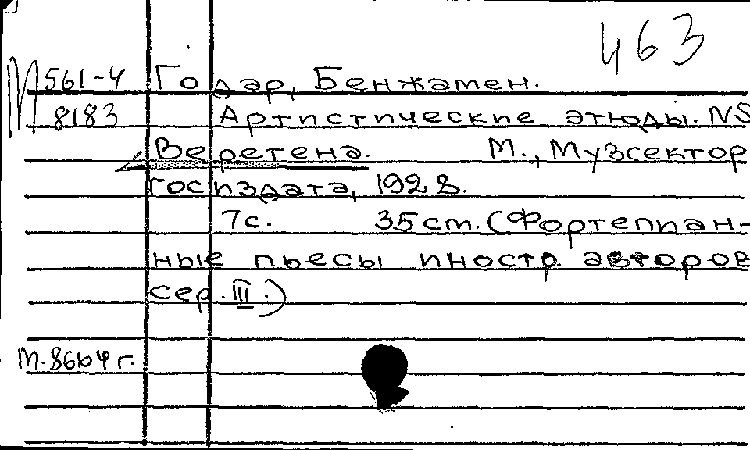 463
М 561-4 Годар, Бенжамен.
8183 Артистические этюды. N5
Веретена. М., Музсектор
Госиздата, 1928.
7с. 35 cm. (Фортепиан-
ные пьесы иностр. авторов
сер. III.)